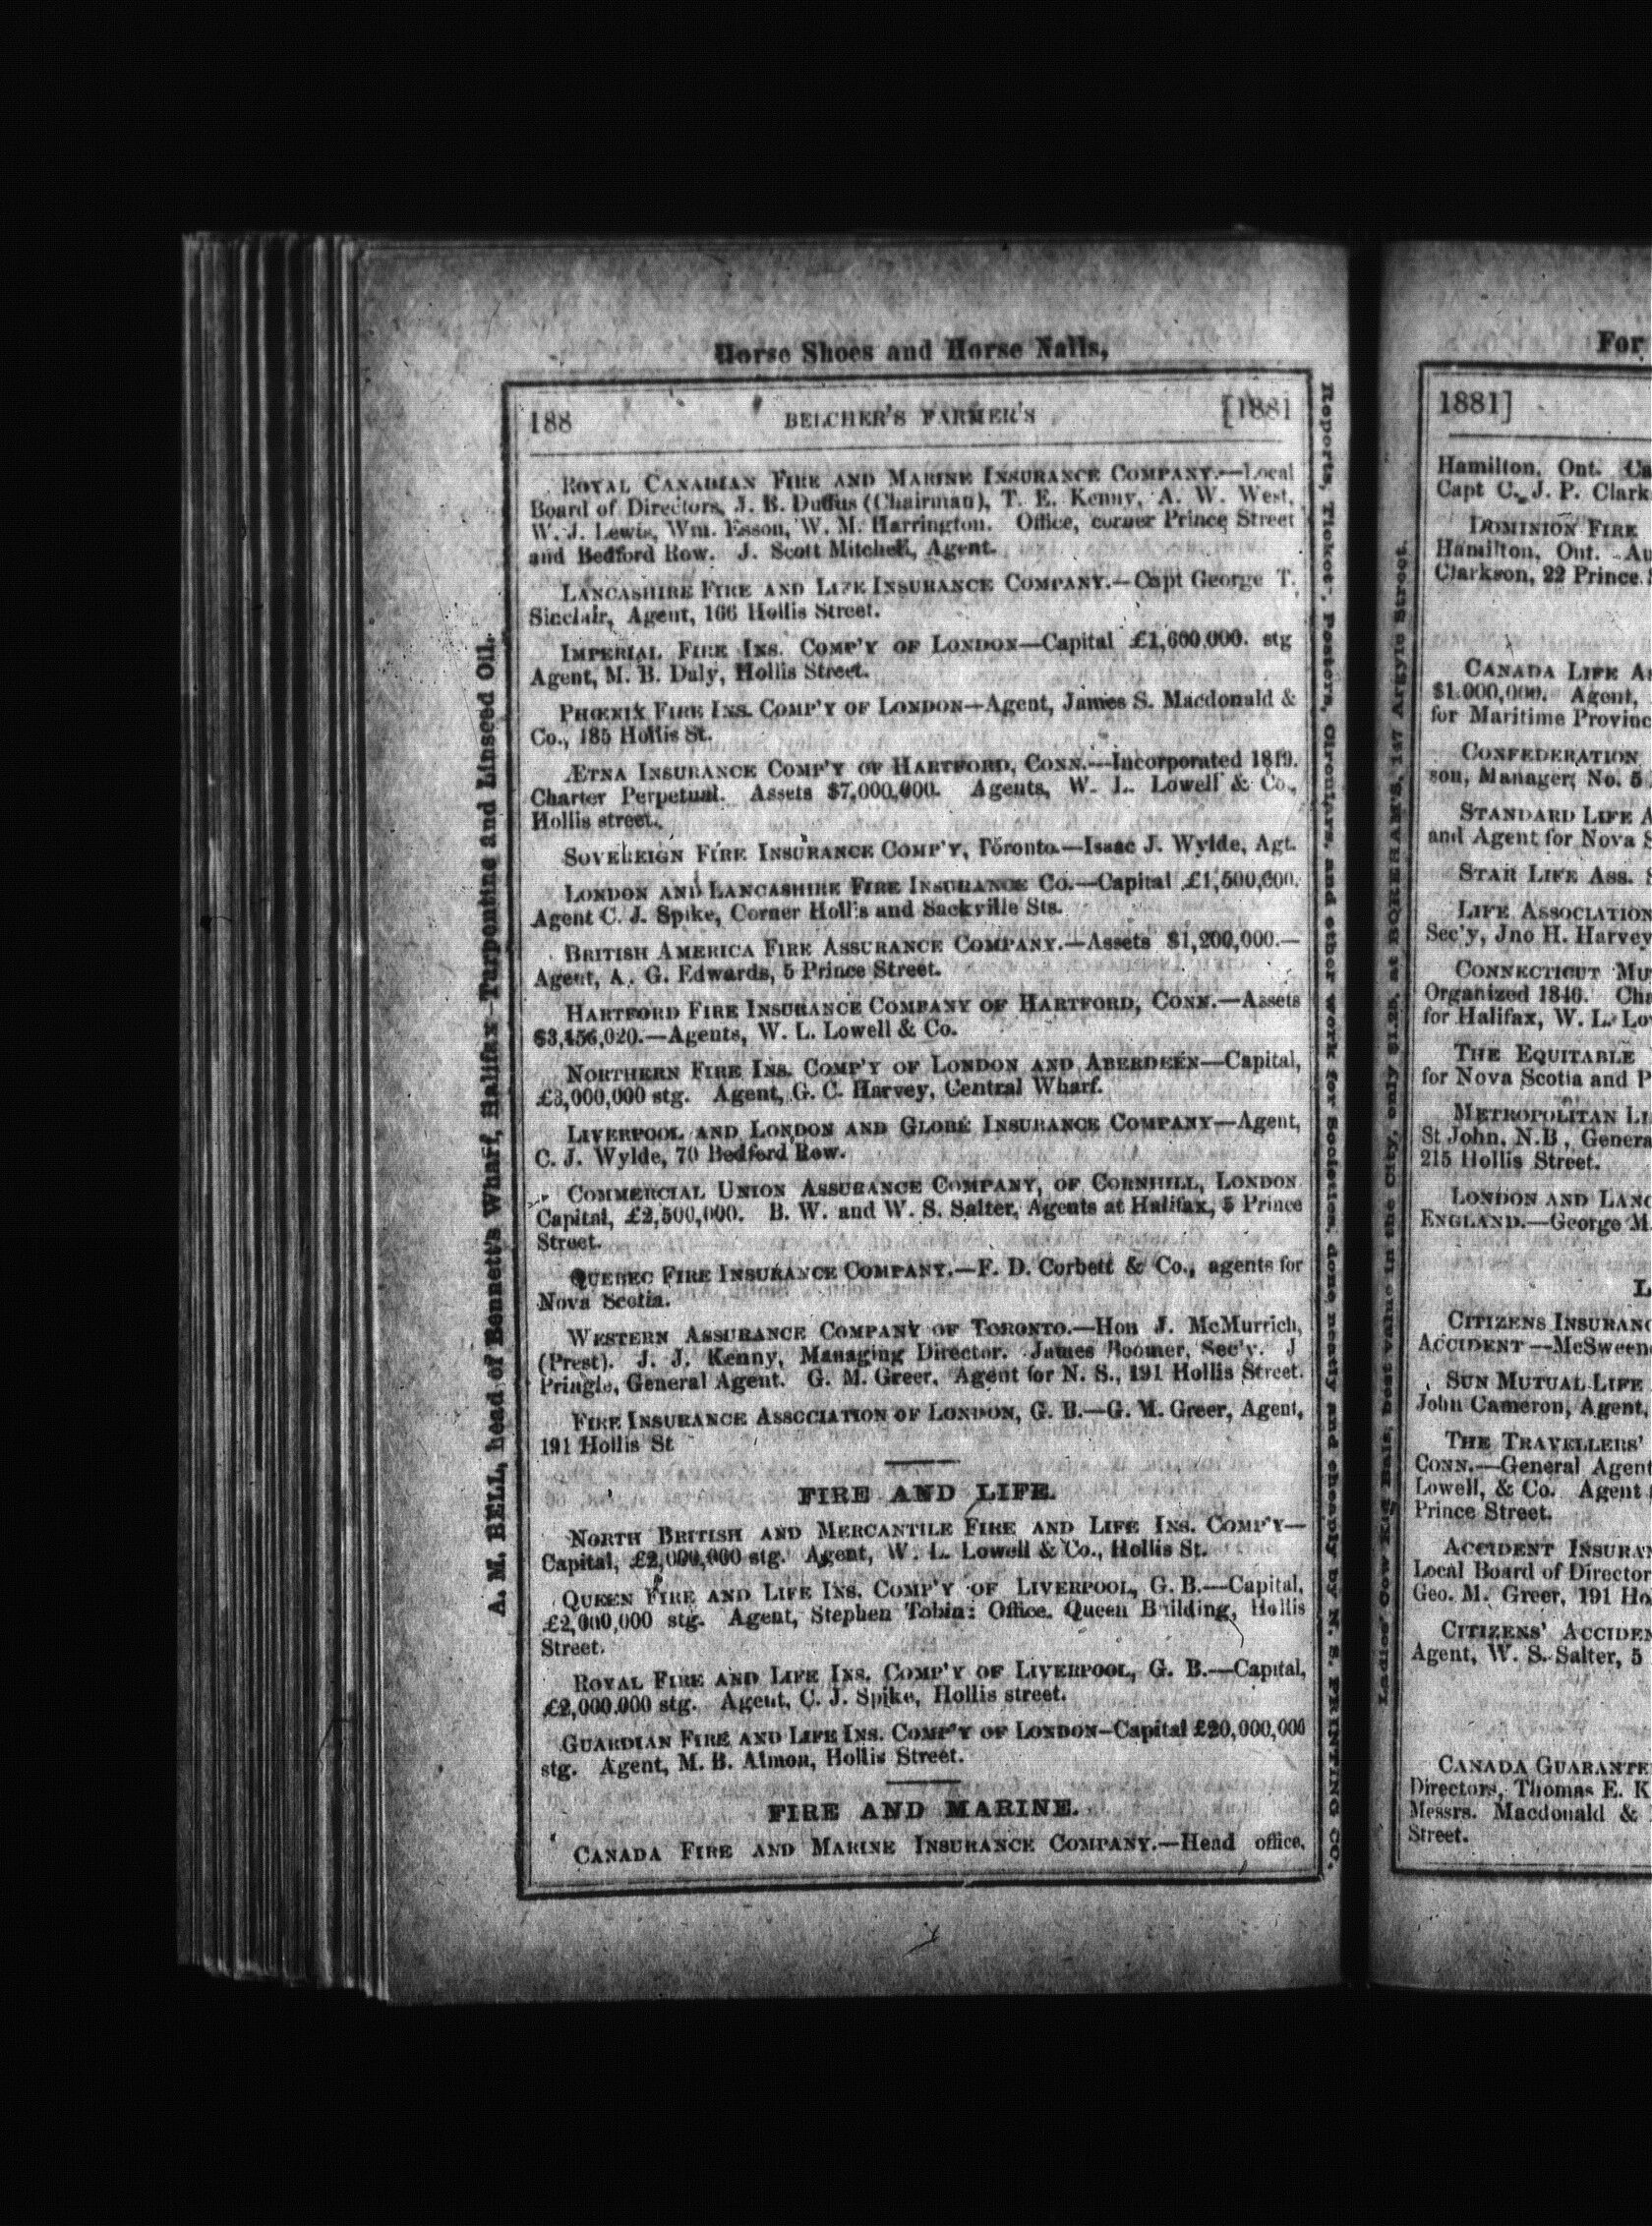 Horse Shoes and Horse Nails,
188 BELCHER'S FARMER'S [1881
ROYAL CANADIAN FIRE AND MARINE INSURANCE COMPANY.—Local
Board of Directors, J. B. Duffus (Chairman), T. E. Kenny, A. W. West,
W. J. Lewis, Wm. Esson, W. M. Harrington. Office, corner Prince Street
and Bedford Row. J. Scott Mitchell, Agent.
LANCASHIRE FIRE AND LIFE INSURANCE COMPANY.—Capt George T.
Sinclair, Agent, 166 Hollis Street.
IMPERIAL FIRE INS. COMP'Y OF LONDON—Capital £1,600,000. stg
Agent, M. B. Daly, Hollis Street.
PHŒNIX FIRE INS. COMP'Y OF LONDON—Agent, James S. Macdonald &
Co., 185 Hollis St.
ÆTNA INSURANCE COMP'Y OF HARTFORD, CONN.—Incorporated 1819.
Charter Perpetual. Assets $7,000,000. Agents, W. L. Lowell & Co.,
Hollis street.
SOVEREIGN FIRE INSURANCE COMP'Y, Toronto.—Isaac J. Wylde, Agt.
LONDON AND LANCASHIRE FIRE INSURANCE CO.—Capital £1,500,000.
Agent C. J. Spike, Corner Hollis and Sackville Sts.
BRITISH AMERICA FIRE ASSURANCE COMPANY.—Assets $1,200,000.—
Agent, A. G. Edwards, 5 Prince Street.
HARTFORD FIRE INSURANCE COMPANY OF HARTFORD, CONN.—Assets
$3,456,020.—Agents, W. L. Lowell & Co.
NORTHERN FIRE INS. COMP'Y OF LONDON AND ABERDEEN—Capital,
£3,000,000 stg. Agent, G. C. Harvey, Central Wharf.
LIVERPOOL AND LONDON AND GLOBE INSURANCE COMPANY—Agent,
C. J. Wylde, 70 Bedford Row.
COMMERCIAL UNION ASSURANCE COMPANY, OF CORNHILL, LONDON
Capital, £2,500,000. B. W. and W. S. Salter, Agents at Halifax, 5 Prince
Street.
QUEBEC FIRE INSURANCE COMPANY.—F. D. Corbett & Co., agents for
Nova Scotia.
WESTERN ASSURANCE COMPANY OF TORONTO.—Hon J. McMurrich,
(Prest). J. J. Kenny, Managing Director. James Boomer, Sec'y. J
Pringle, General Agent. G. M. Greer, Agent for N. S., 191 Hollis Street.
FIRE INSURANCE ASSOCIATION OF LONDON, G. B.—G. M. Greer, Agent,
191 Hollis St
FIRE AND LIFE.
NORTH BRITISH AND MERCANTILE FIRE AND LIFE INS. COMP'Y—
Capital, £2,000,000 stg. Agent, W. L. Lowell & Co., Hollis St.
QUEEN FIRE AND LIFE INS. COMP'Y OF LIVERPOOL, G. B.—Capital,
£2,000,000 stg. Agent, Stephen Tobin: Office, Queen Building, Hollis
Street.
ROYAL FIRE AND LIFE INS. COMP'Y OF LIVERPOOL, G. B.—Capital,
£2,000,000 stg. Agent, C. J. Spike, Hollis street.
GUARDIAN FIRE AND LIFE INS. COMP'Y OF LONDON—Capital £20,000,000
stg. Agent, M. B. Almon, Hollis Street.
FIRE AND MARINE.
CANADA FIRE AND MARINE INSURANCE COMPANY.—Head office,
A. M. BELL, head of Bennett's Wharf, Halifax—Turpentine and Linseed Oil.
Reports, Tickets, Posters, Circulars, and other work for Societies, done neatly and cheaply by N. S. PRINTING CO.
Ladies' Cow Kid Bals, best value in the City, only $1.25, at BOREHAM'S, 147 Argyle Street.
For
1881]
Hamilton, Ont. Ca
Capt C. J. P. Clark
DOMINION FIRE
Hamilton, Ont. Au
Clarkson, 22 Prince
CANADA LIFE A
$1.000,000. Agent,
for Maritime Provinc
CONFEDERATION
son, Manager; No. 5
STANDARD LIFE A
and Agent for Nova S
STAR LIFE ASS. S
LIFE ASSOCIATION
Sec'y, Jno H. Harvey
CONNECTICUT MU
Organized 1846. Cha
for Halifax, W. L. Lo
THE EQUITABLE
for Nova Scotia and P
METROPOLITAN LI
St John, N.B, Genera
215 Hollis Street.
LONDON AND LANC
ENGLAND.—George M.
L
CITIZENS INSURANC
ACCIDENT—McSween
SUN MUTUAL LIFE
John Cameron, Agent,
THE TRAVELLERS'
CONN.—General Agent
Lowell, & Co. Agent
Prince Street.
ACCIDENT INSURAN
Local Board of Director
Geo. M. Greer, 191 Ho
CITIZENS' ACCIDEN
Agent, W. S. Salter, 5
CANADA GUARANTE
Directors, Thomas E. K
Messrs. Macdonald &
Street.